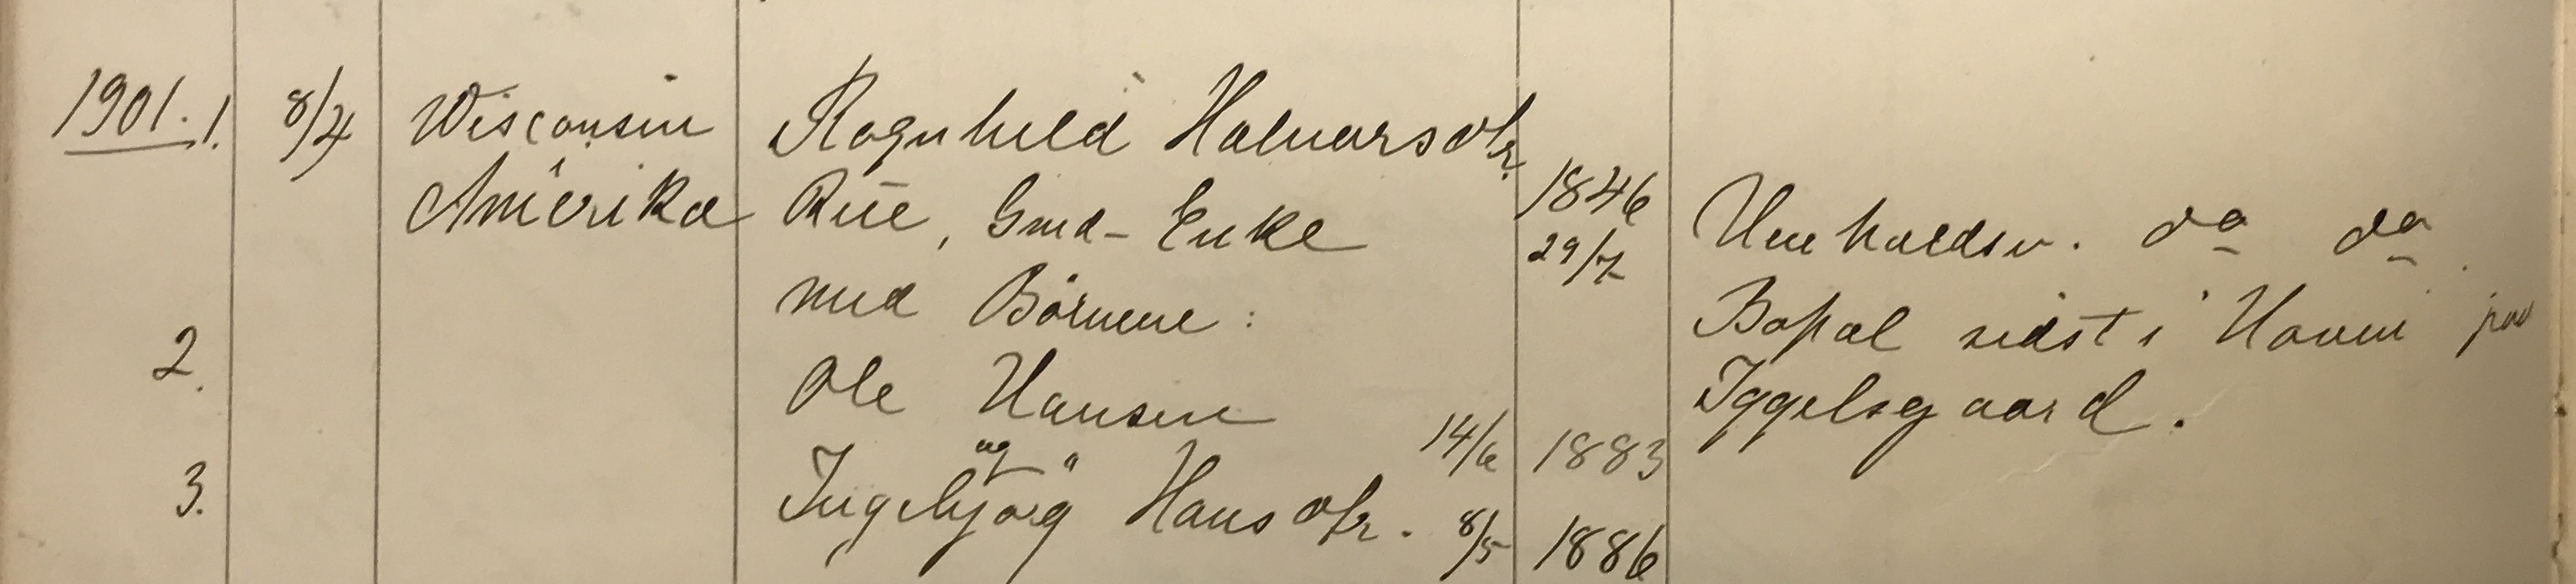 1901. 1. 8/4 Wisconsin Ragnhild Halvorsdtr.
Amerika Rue, Gmd-Enke 1846
29/7
Umholdsv. do do.
med Børnene:
Bopæl sidst i Hovin paa
2. Ole Hansen 14/6 1883
Iggelsgaard.
og
3. Ingebjørg Hansdtr. 8/5 1886